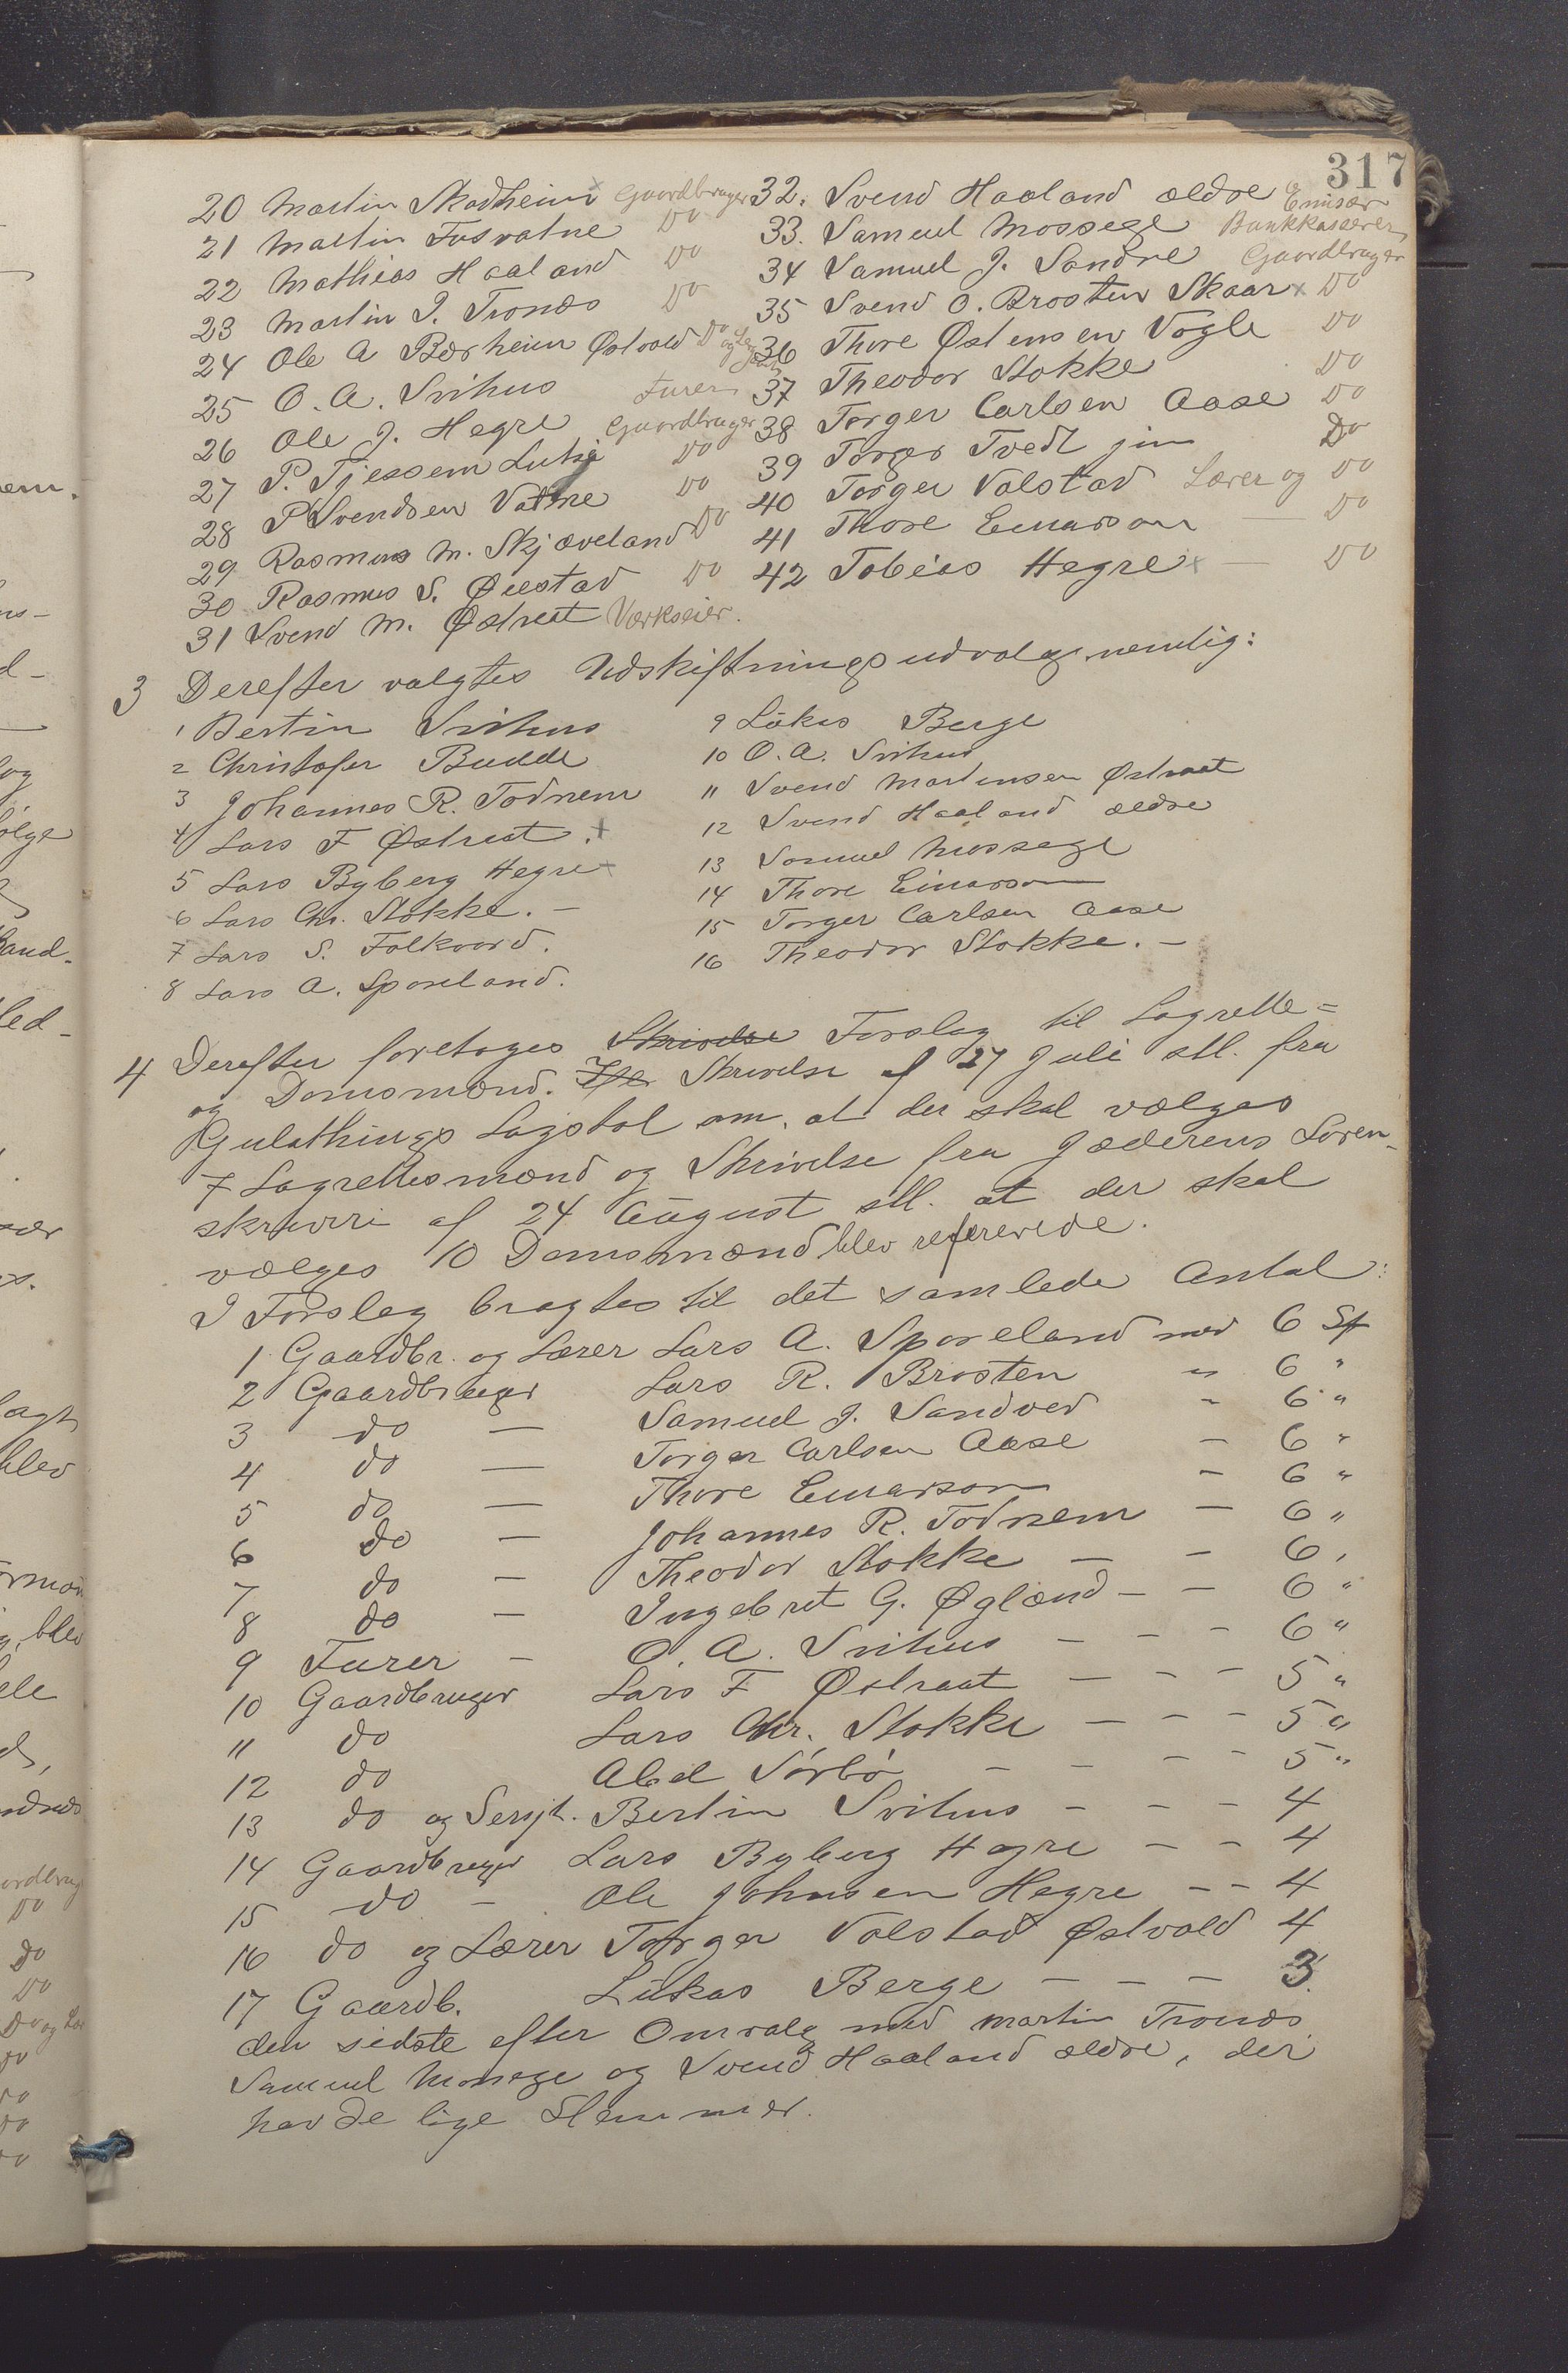 317
20 Martin Skadheim x Gaardbruger
21 Martin Fosvatne Do
22 Mathias Haaland Do
23 Martin I. Tronæs Do
24 Ole A Bærheim Østvold Do og
25 O. A. Svihus Furer
26 Ole J. Hegre Gaardbruger
27 P. Tjessem Lutsi Do
28 P Svendsen Vatne Do
29 Rasmus M. Skjæveland Do
30 Rasmus S. Øiestad Do
31 Svend M. Østraat Værkseier.
32. Svend Haaland ældre Emisær
33. Samuel Mossege Bankkasserer
34 Samuel J. Sandve Gaardbruger
35 Svend O. Brosten Skaar x Do
36 Thore Østensen Vogle Do
37 Theodor Stokke Do
38 Torger Carlsen Aase Do
39 Torger Tvedt jun Do
40 Torger Valstad Lærer og Do
41 Thore Einarson — Do
42 Tobias Hegre x — Do
3 Derefter valgtes Udskiftningsudvalg nemlig:
1 Bertin Svihus
2 Christofer Budde
3 Johannes R. Todnem
4 Lars F Østraat . x
5 Lars Byberg Hegre x
6 Lars Chr. Stokke. –
7 Lars S. Folkvord.
8 Lars A. Sporeland.
9 Lükas Berge
10 O. A. Svihus
11 Svend Martinsen Østraat
12 Svend Haaland ældre
13 Samuel Mossege
14 Thore Einarson
15 Torger Carlsen Aase
16 Theodor Stokke. –
4 Derefter foretoges Skrivelse Forslag til Lagrette=
og Domsmænd. Skrivelse af 27 Juli stl. fra
Gulathings Lagstol om, at der skal vælges
7 Lagrettesmænd og Skrivelse fra Jæderens Soren-
skriveri af 24 August stl. at der skal
vælges 10 Domsmænd blev refererede.
I Forslag bragtes til det samlede Antal:
1 Gaardbr. og Lærer Lars A. Sporeland med 6 St
2 Gaardbruger Lars R. Brosten " 6 "
3 do — Samuel J. Sandved - 6 "
4 do — Torger Carlsen Aase — 6 "
5 do — Thore Einarson - 6 "
6 do — Johannes R. Todnem — 6 "
7 do — Theodor Stokke — - 6 "
8 do — Ingebret G. Øgland - — 6 "
9 Furer — O. A. Svihus - - - 6 "
10 Gaardbruger Lars F Østraat - - - 5 "
11 do Lars Chr. Stokke - - - 5 "
12 do Abel Sørbø - - - 5 "
13 do og Sersjt. Bertin Svihus - - - 4
14 Gaardbruger Lars Byberg Hegre - - 4
15 do - Ole Johnsen Hegre - - 4
16 do og Lærer Torger Valstad Østvold 4
17 Gaardb. Lükas Berge - - - 3
den sidste efter Omvalg med Martin Tronæs
Samuel Mossege og Svend Haaland ældre, der
havde lige Stemmer.